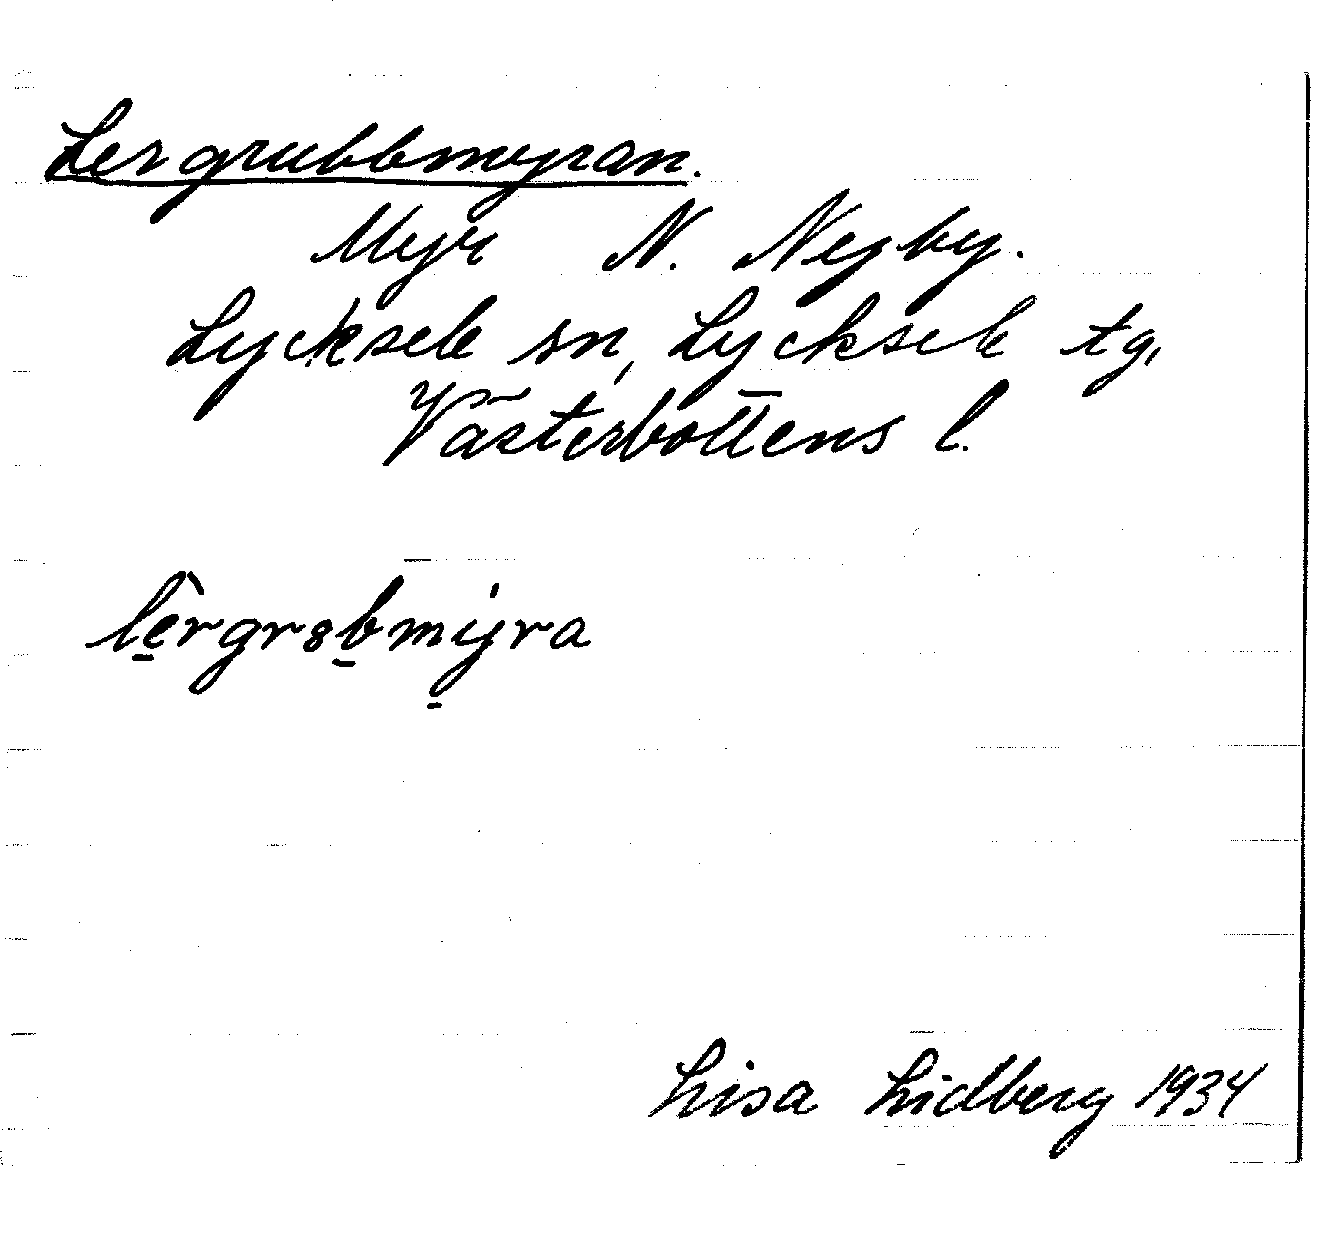 Lergrubbmyran.
Myr N. Nyby.
Lycksele sn, Lycksele tg,
Västerbottens l.
Lisa Lidberg 1934